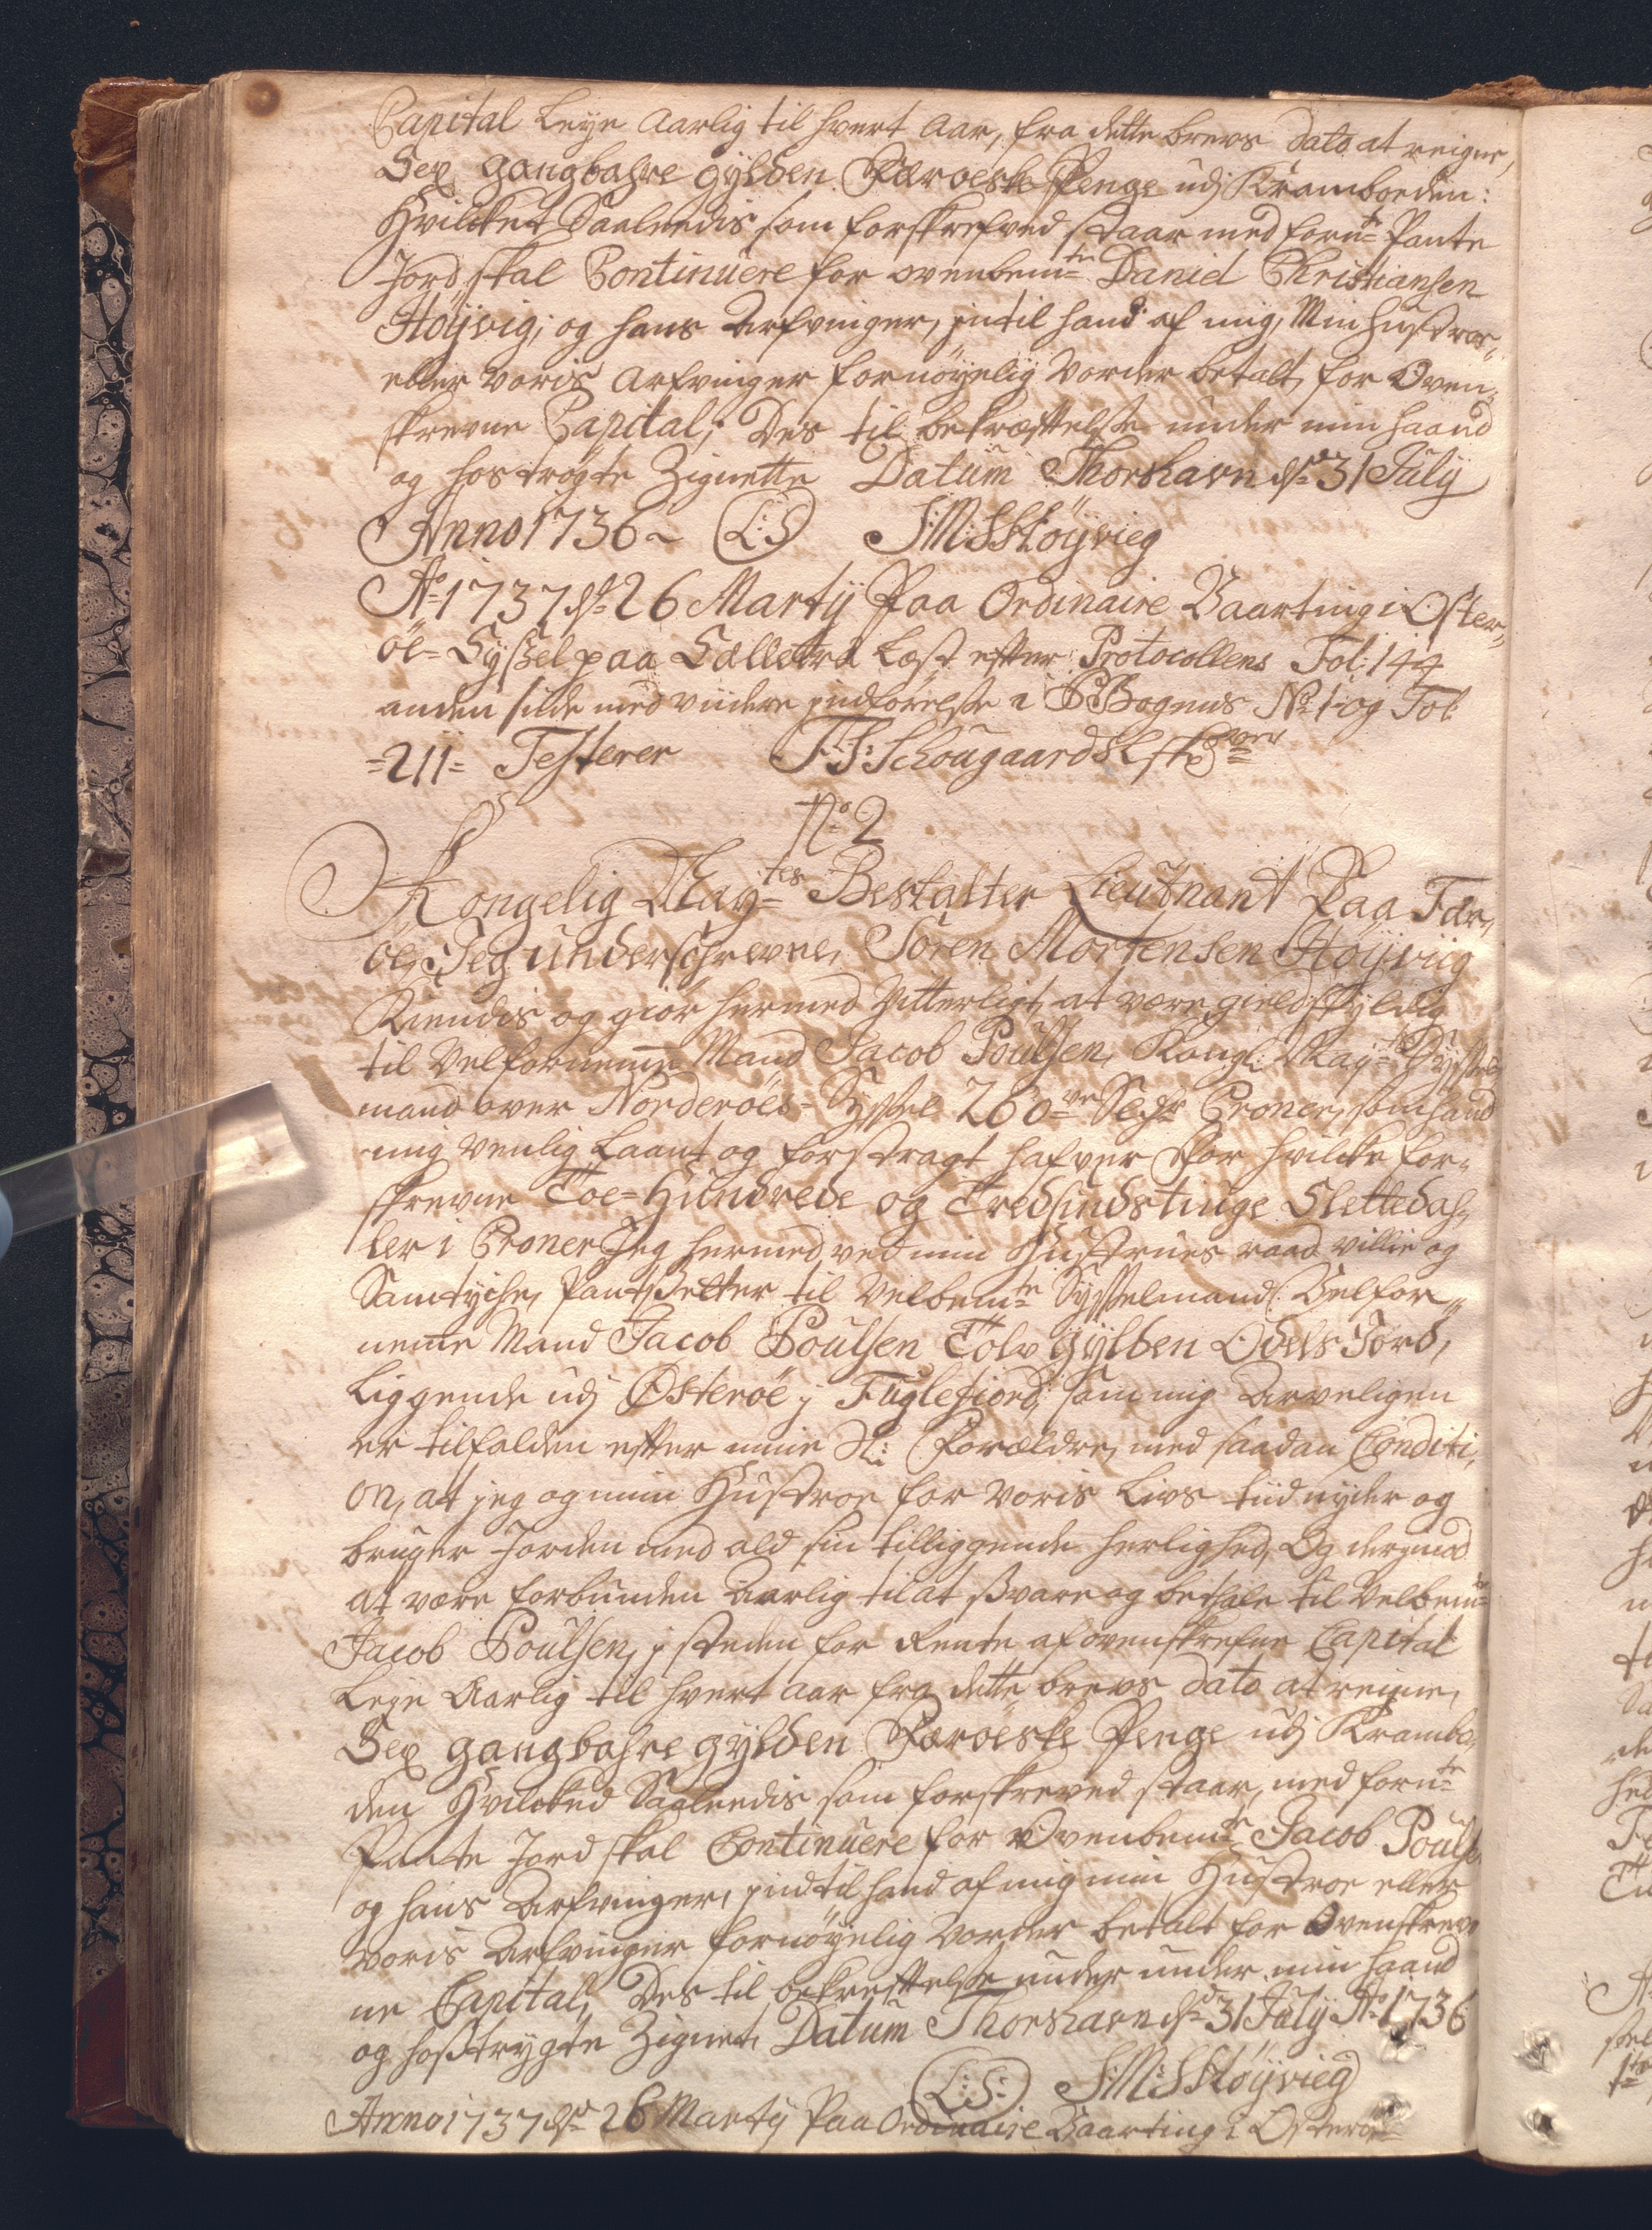 Capital Leye Aarlig til hvert Aar, fra dette brevs dato at reigne,
Sex gangbahre gylden Færoeske Penge udj Kramboeden:
Hvilcket Saaleedis som forskrefved staar med fornte Pante
Jord skal Continuere for ovenbemte Daniel Christiansen
Høÿvig; og hans Arfvinger, intil hand af mig, Min Hustroe,
eller voris Arfvinger fornøyelig vorder betalt for Oven,,
skrevne Capital; Des til bekræfftelse under min haand
og hostrøgte Zignette Datum Thorshavn dn 31 Julÿ
Anno 1736 ~ (L:S) S:M:S Høÿvieg
Ao 1737 dn 26 Martÿ Paa Ordinaire Vaarting i Øster,,
øe=Sÿssel paa Sælletræ Læst efter Protocollens Fol: 144
anden side med viidere indførelse i P Bogens No 1 og Fol
=211= Testerer J:S: Schougaard
No 2
Kongelig Maytes Bestalter Lieutnant Paa Fær,,
øe, Jeg underschrevne, Søren Mortensen Høÿviig
Kiendis og giør hermed Vitterligt at være gield skÿldig
til Velfornemme Mand Jacob Poulsen, Kongl: Mayts Sÿssel
mand over Norderøes=Sÿssel 260 Sldr Croner, som hand
mig venlig Laant og forstragt hafver For hvilcke for,,
skrevne Toe=Hundrede og Tredsindstiuge Slettedah,,
ler i Croner Jeg hermed ved min Hustrues raad villie og
Samtÿche, Pantsetter til Velbemte Sÿsselmand Velfor,,
nemme Mand Jacob Poulsen Tolv gÿlden Odels Jord,
Liggende udj Østerøe j Fuglefiord, som mig Arveligen
er tilfalden efter mine Sl: Forældre, med saadan Conditi,,
on, at jeg og min Hustroe for voris Livs tiid nyder og
bruger Jorden med ald sin tilliggende herlighed, Og derimod
at være forbunden Aarlig til at svare og bethale til Velbemte
Jacob Poulsen, j steden for Rente af ovenskrefne Capital
Leye Aarlig til hvert Aar fra dette brevs dato at reigne,
Sex gangbahre gÿlden Færøeske Penge udj Krambo,,
den Hvilcked Saaleedis som forskreved staar, med fornte
Pante Jord skal Continuere for Ovenbemte Jacob Pouls
og hans Arfvinger, indtil hand af mig min Hustroe eller
voris Arfvinger fornøyelig vorder betalt for Ovenskrev
ne Capital, Des til bekreftelse under under min haand
og hostrygte Zignet, Datum Thorshavn dn 31 Julÿ Ao 1736
(L:S:) S:M:S Høÿvieg
Anno 1737 dn 26 Martÿ Paa Ordinaire Vaarting i Østerøe